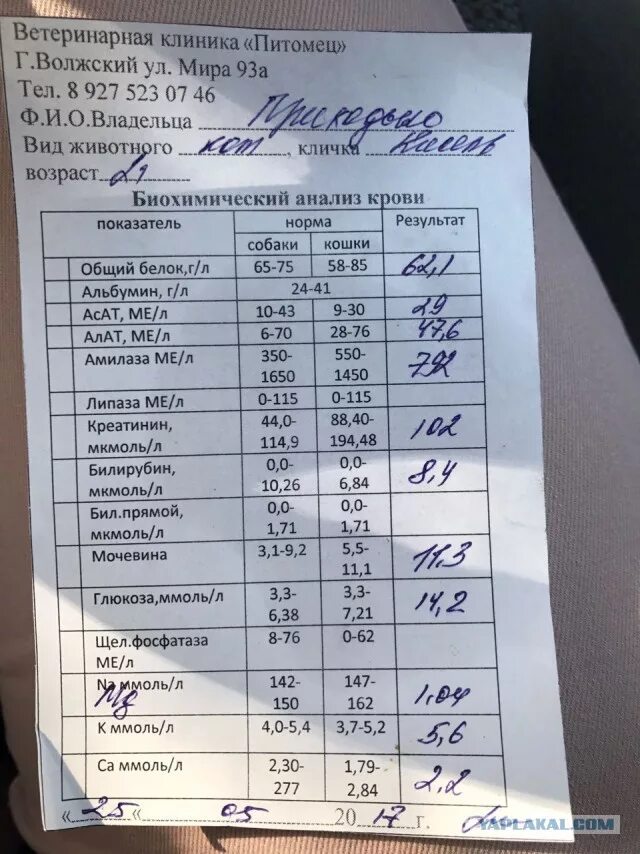 Ветеринарная клиника «Питомец»
Г.Волжский ул. Мира 93а
Тел. 8 927 523 07 46
Ф.И.О.Владельца
Вид животного кот, кличка
возраст
Биохимический анализ крови
показатель норма Результат
собаки кошки
Общий белок,г/л 65-75 58-85 62,1
Альбумин, г/л 24-41
АсАТ, МЕ/л 10-43 9-30 29
АлАТ, МЕ/л 6-70 28-76 47,6
Амилаза МЕ/л 350- 550- 792
1650 1450
Липаза МЕ/л 0-115 0-115
Креатинин, 44,0- 88,40- 102
мкмоль/л 114,9 194,48
Билирубин, 0,0- 0,0- 8,4
мкмоль/л 10,26 6,84
Бил.прямой, 0,0- 0,0-
мкмоль/л 1,71 1,71
Мочевина 3,1-9,2 5,5- 11,3
11,1
Глюкоза,ммоль/л 3,3- 3,3- 14,2
6,38 7,21
Щел.фосфатаза 8-76 0-62
МЕ/л
Na ммоль/л 142- 147- 1,04
Mg 150 162
К ммоль/л 4,0-5,4 3,7-5,2 5,6
Са ммоль/л 2,30- 1,79- 2,2
277 2,84
«25« 05 2017 г.
YAPLAKAL.COM